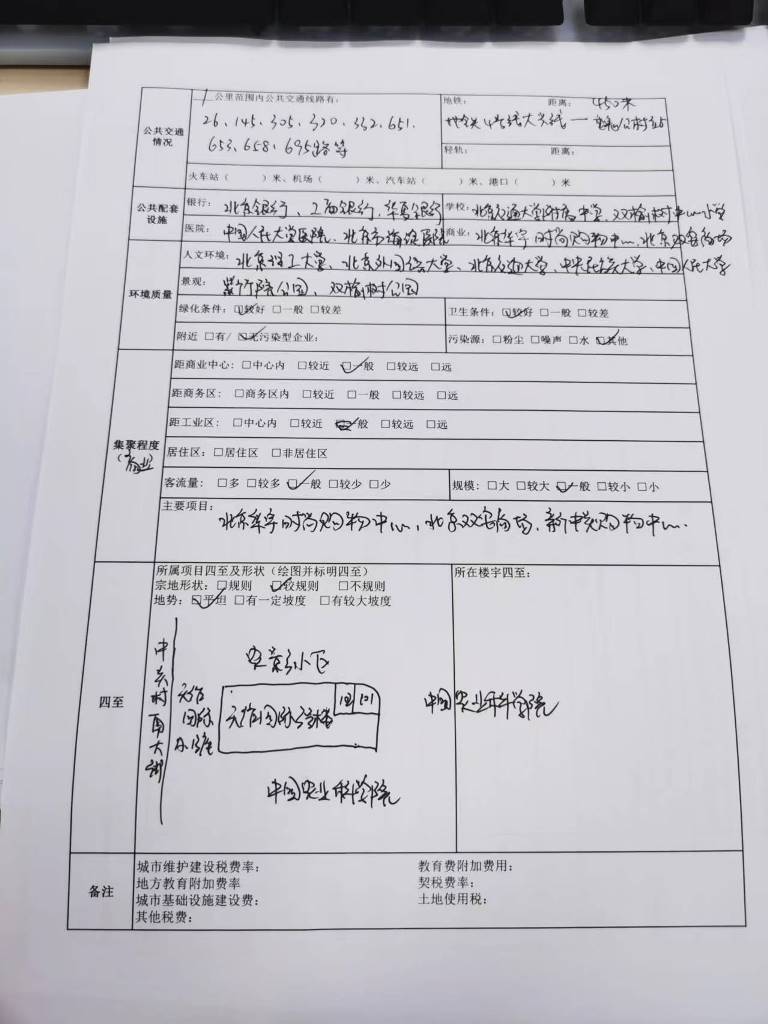 公共交通情况
1公里范围内公共交通线路有:
26、145、305、320、332、651、
653、658、695路等
地铁: 距离: 450米
地铁4号线大兴线—魏公村站
轻轨: 距离:
火车站( )米、机场( )米、汽车站( )米、港口( )米
公共配套设施
银行: 北京银行、工商银行、华夏银行
学校: 北京交通大学附属中学、双榆树中心小学
医院: 中国人民大学医院、北京市海淀医院
商业: 北京华宇时尚购物中心、北京双安商场
环境质量
人文环境: 北京理工大学、北京外国语大学、北京交通大学、中央民族大学、中国人民大学
景观: 紫竹院公园、双榆树公园
绿化条件: ☑较好 □一般 □较差
卫生条件: ☑较好 □一般 □较差
附近 □有/ ☑无污染型企业:
污染源: □粉尘 □噪声 □水 ☑其他
集聚程度
(商业)
距商业中心: □中心内 □较近 ☑一般 □较远 □远
距商务区: □商务区内 □较近 □一般 □较远 □远
距工业区: □中心内 □较近 ☑一般 □较远 □远
居住区: □居住区 □非居住区
客流量: □多 □较多 ☑一般 □较少 □少
规模: □大 □较大 ☑一般 □较小 □小
主要项目:
北京华宇时尚购物中心、北京双安商场、新中关购物中心.
四至
所属项目四至及形状(绘图并标明四至)
宗地形状: □规则 ☑较规则 □不规则
地势: ☑平坦 □有一定坡度 □有较大坡度
所在楼宇四至:
中关村南大街
小区
101
中国农业科学院
中国农业科学院
备注
城市维护建设税费率:
教育费附加费用:
地方教育附加费率
契税费率:
城市基础设施建设费:
土地使用税:
其他税费: